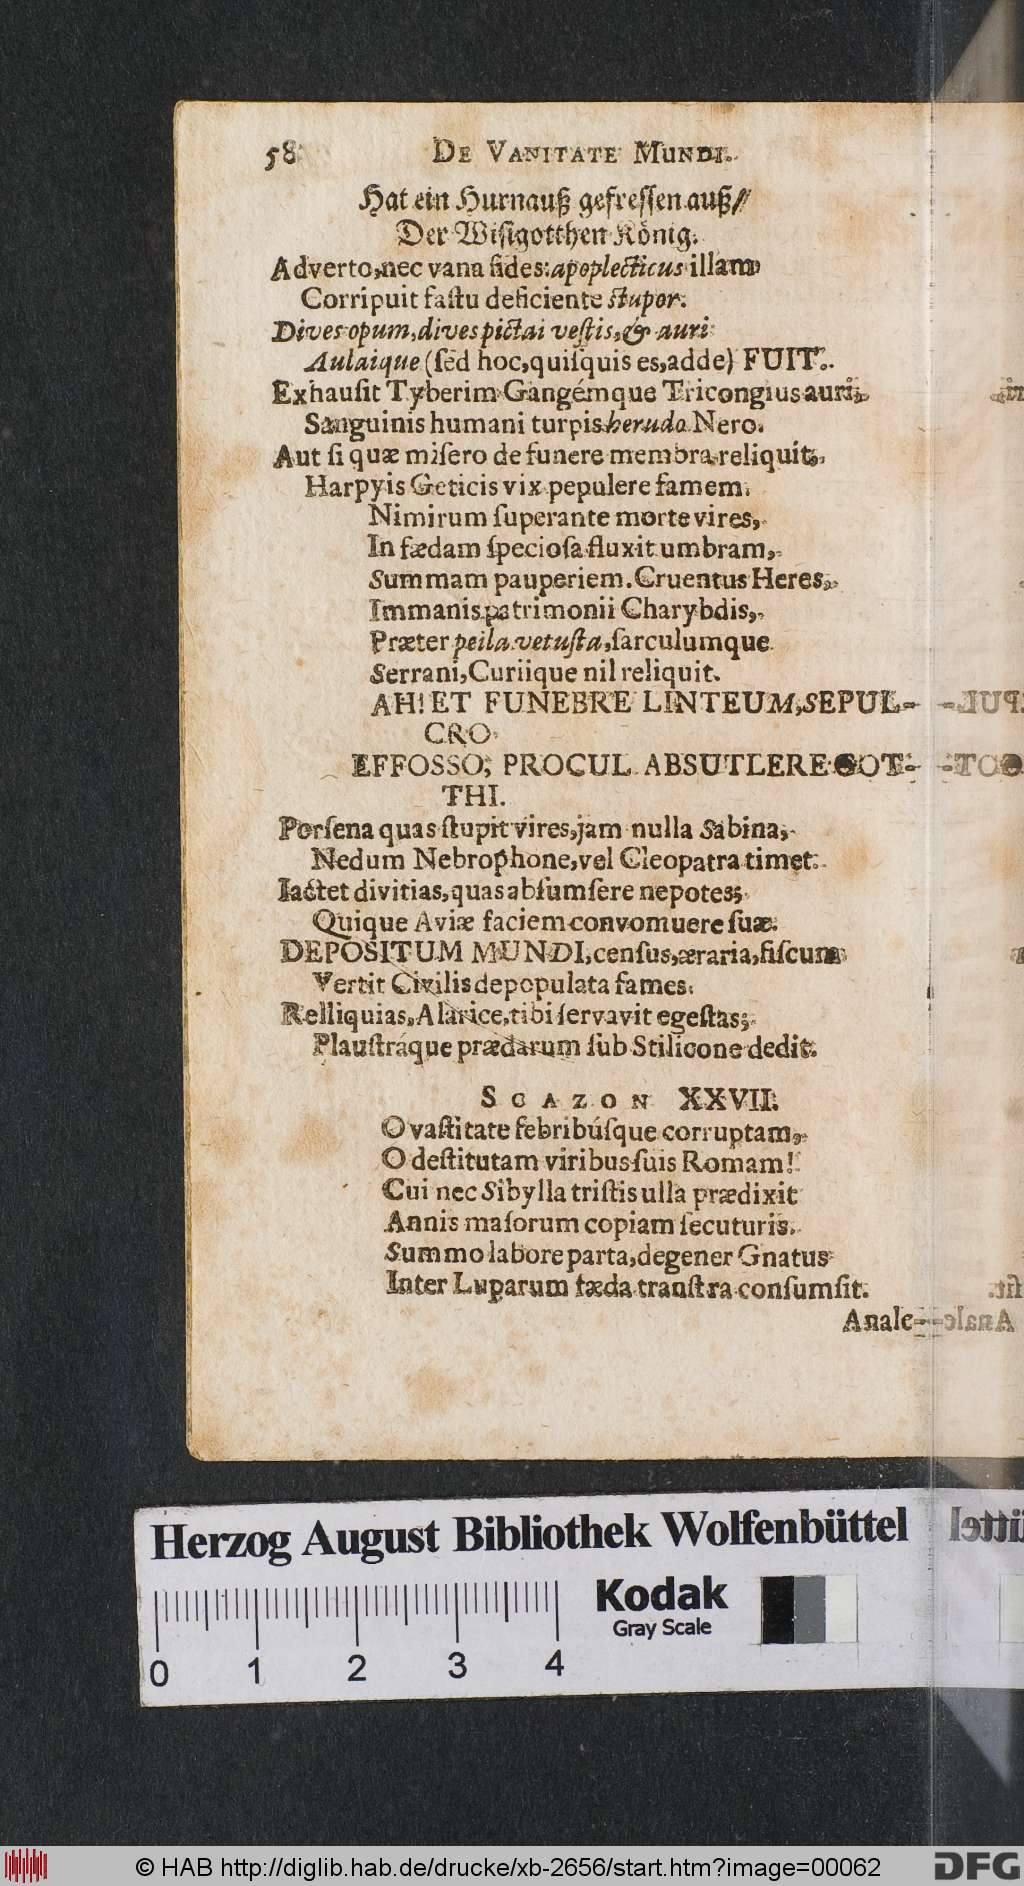 58 DE VANITATE MUNDI.
Hat ein Hurnauß gefressen auß//
Der Wisigotthen König.
Adverto, nec vana fides: apoplecticus illam
Corripuit fastu deficiente stupor.
Dives opum, dives pictai vestis, & auri
Aulaique (sed hoc, quisquis es, adde) FUIT.
Exhausit Tyberim Gangémque Tricongius auri,
Sanguinis humani turpis herudo Nero.
Aut si quæ misero de funere membra reliquit,
Harpyis Geticis vix pepulere famem.
Nimirum superante morte vires,
In fædam speciosa fluxit umbram,
Summam pauperiem. Cruentus Heres,
Immanis patrimonii Charybdis,
Præter peila vetusta, sarculumque
Serrani, Curiique nil reliquit.
AH! ET FUNEBRE LINTEUM, SEPUL-
CRO
EFFOSSO, PROCUL ABSUTLERE GOT-
THI.
Porsena quas stupit vires, jam nulla Sabina,
Nedum Nebrophone, vel Cleopatra timet.
Iactet divitias, quas absumsere nepotes;
Quique Aviæ faciem convomuere suæ.
DEPOSITUM MUNDI, census, æraria, fiscum
Vertit Civilis depopulata fames.
Relliquias, Alarice, tibi servavit egestas;
Plaustráque prædarum sub Stilicone dedit.
SCAZON XXVII.
O vastitate febribúsque corruptam,
O destitutam viribus suis Romam!
Cui nec Sibylla tristis ulla prædixit
Annis malorum copiam secuturis.
Summo labore parta, degener Gnatus
Inter Luparum fæda transtra consumsit.
Anale-
Herzog August Bibliothek Wolfenbüttel
Kodak
Gray Scale
0 1 2 3 4
© HAB http://diglib.hab.de/drucke/xb-2656/start.htm?image=00062
DFG